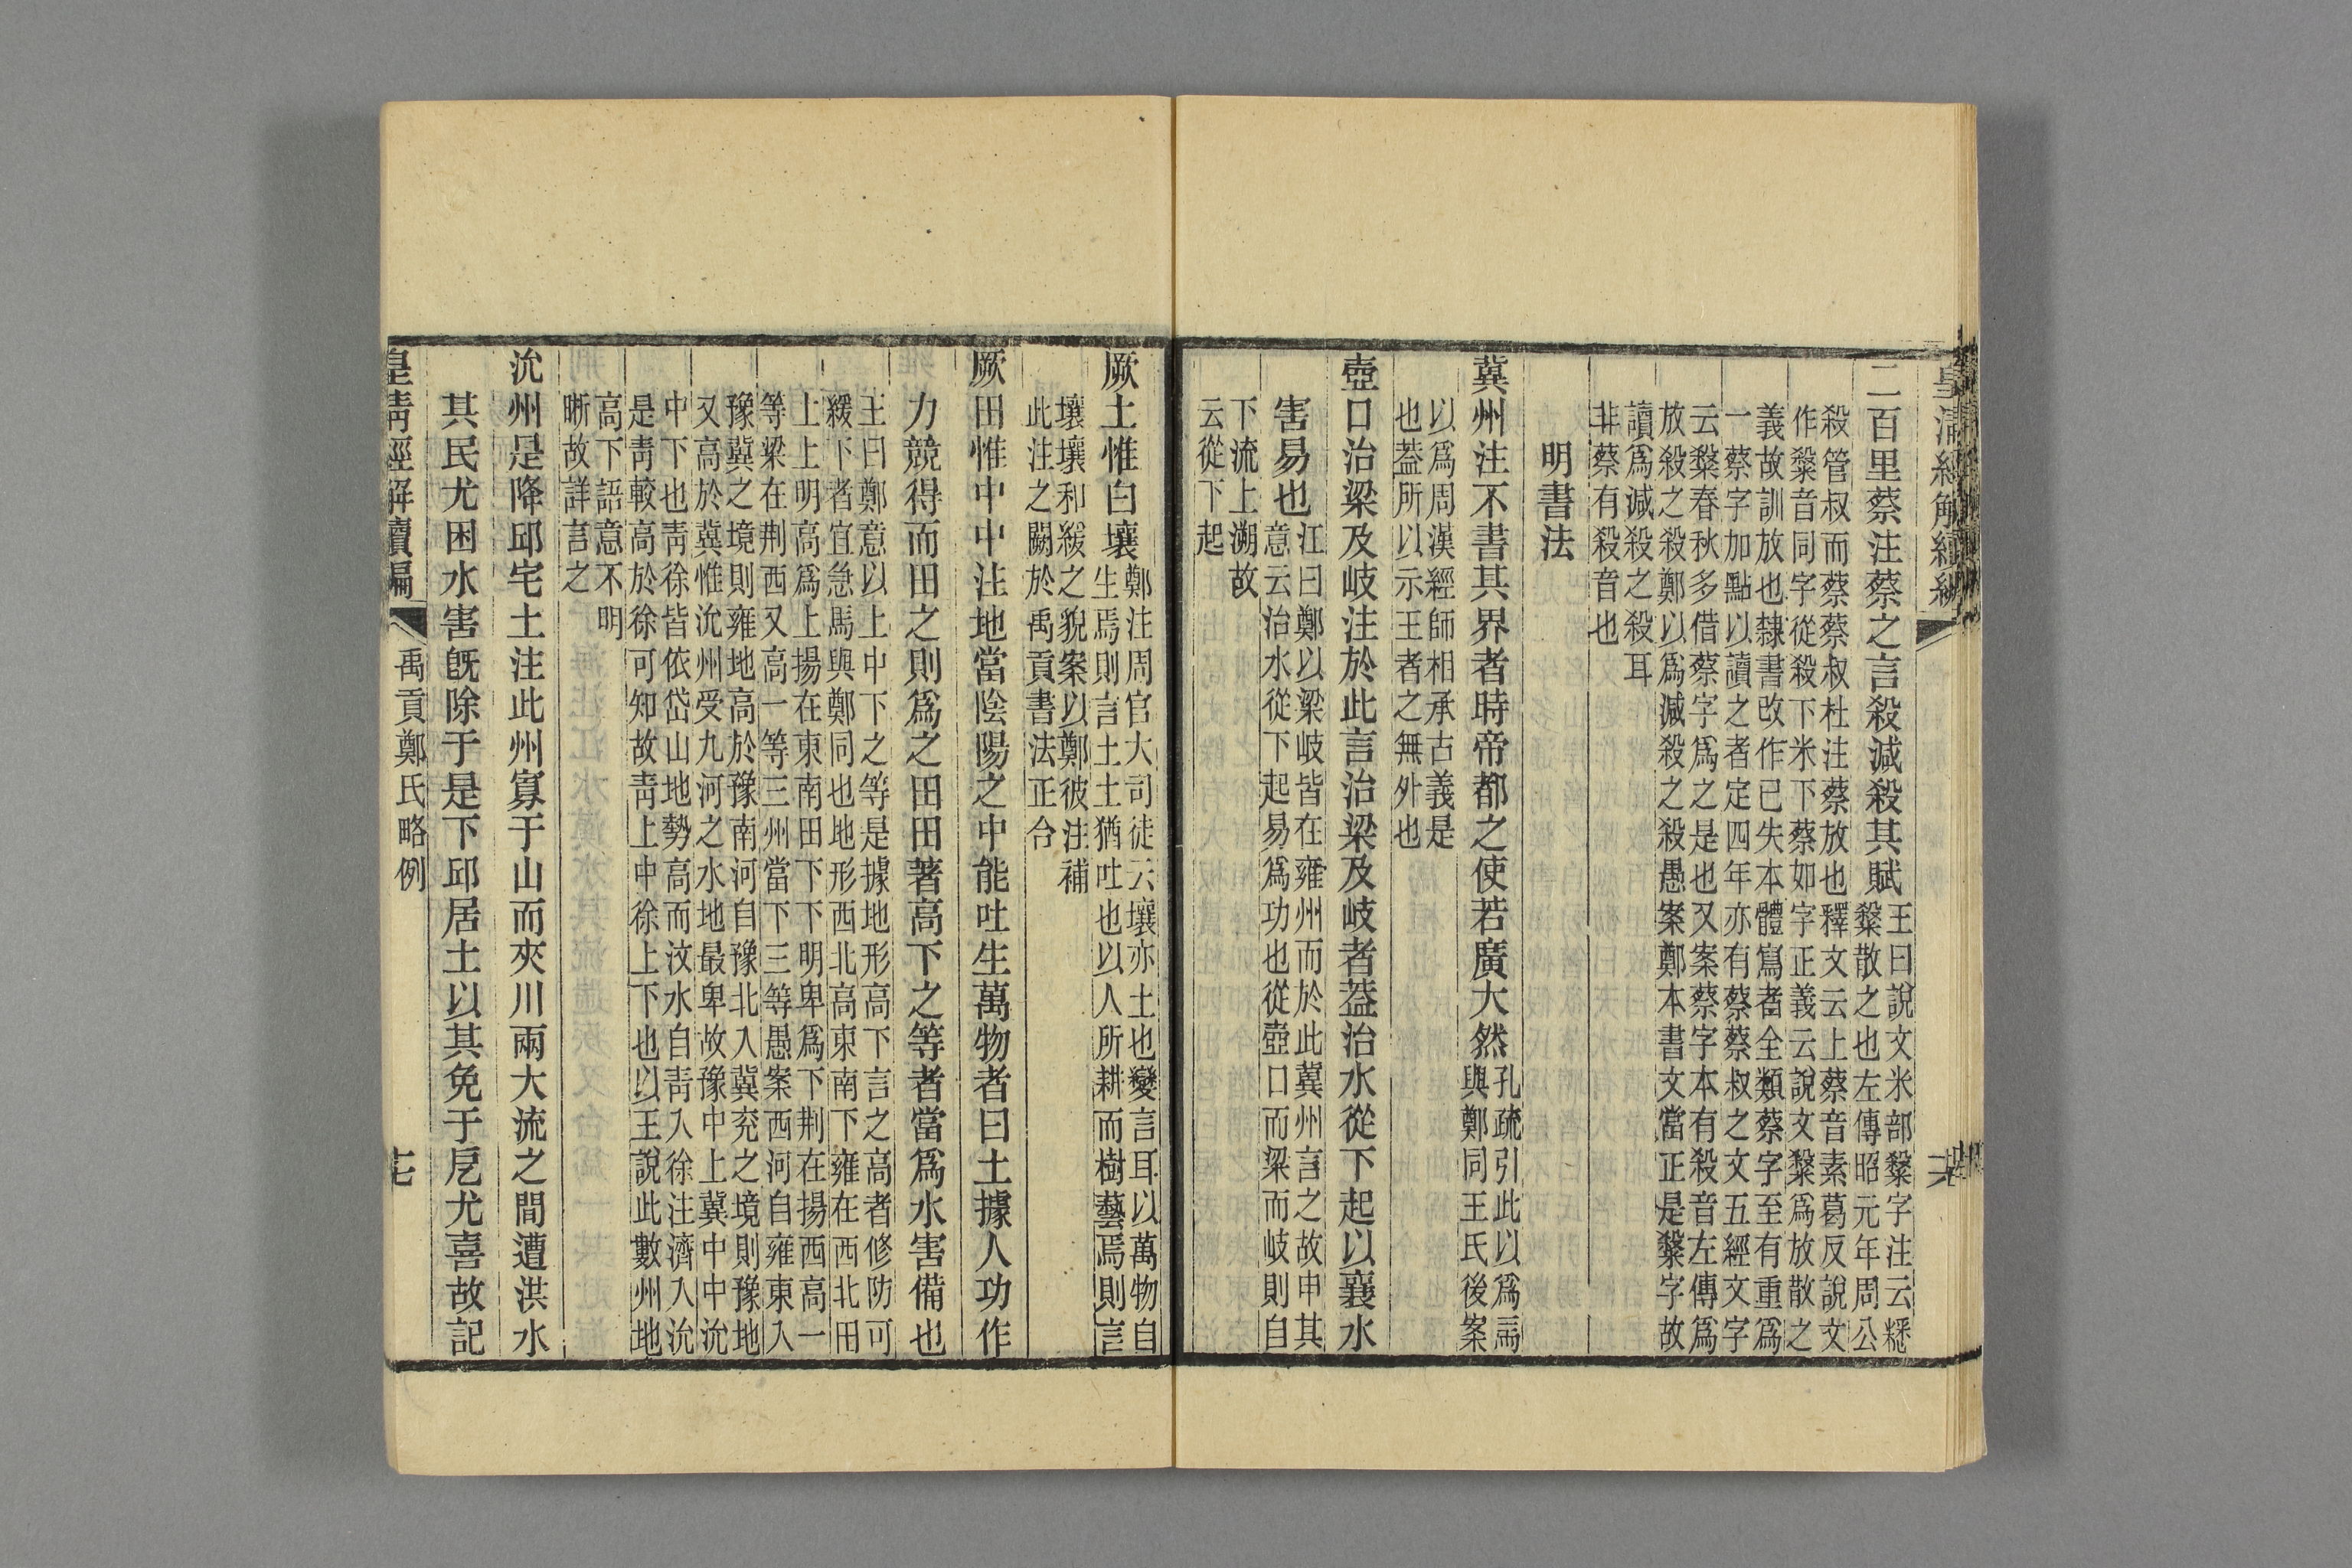 皇清經解續編
二百里蔡注蔡之言殺減殺其賦
王曰說文米部𥻦字注云糂
𥻦散之也左傳昭元年周公
殺管叔而蔡蔡叔杜注蔡放也釋文云上蔡音素葛反說文
作𥻦音同字從殺下米下蔡如字正義云說文𥻦爲放散之
義故訓放也隸書改作已失本體寫者全類蔡字至有重爲
一蔡字加點以讀之者定四年亦有蔡蔡叔之文五經文字
云𥻦春秋多借蔡字爲之是也又案蔡字本有殺音左傳爲
放殺之殺鄭以爲減殺之殺愚案鄭本書文當正是𥻦字故
讀爲減殺之殺耳
非蔡有殺音也
明書法
冀州注不書其界者時帝都之使若廣大然
孔疏引此以爲
與鄭同王氏後案
以爲周漢經師相承古義是
也葢所以示王者之無外也
壺口治梁及岐注於此言治梁及岐者葢治水從下起以襄水
害易也
江曰鄭以梁岐皆在雍州而於此冀州言之故申其
意云治水從下起易爲功也從壺口而梁而岐則自
下流上溯故
云從下起
厥土惟白壤
鄭注周官大司徒云壤亦土也變言耳以萬物自
生焉則言土土猶吐也以人所耕而樹藝焉則言
壤壤和緩之貌案以鄭彼注補
此注之闕於禹貢書法正合
厥田惟中中注地當陰陽之中能吐生萬物者曰土據人功作
力競得而田之則爲之田田著高下之等者當爲水害備也
王曰鄭意以上中下之等是據地形高下言之高者修防可
緩下者宜急馬與鄭同也地形西北高東南下雍在西北田
上上明高爲上揚在東南田下下明卑爲下荆在揚西高一
等梁在荆西又高一等三州當下三等愚案西河自雍東入
豫冀之境則雍地高於豫南河自豫北入冀兖之境則豫地
又高於冀惟沇州受九河之水地最卑故豫中上冀中中沇
中下也靑徐皆依岱山地勢高而汶水自靑入徐注濟入沇
是靑較高於徐可知故靑上中徐上下也以王說此數州地
高下語意不明
晰故詳言之
沇州是降邱宅土注此州寡于山而夾川兩大流之間遭洪水
其民尤困水害旣除于是下邱居土以其免于戹尤喜故記
皇清經解續編
禹貢鄭氏略例